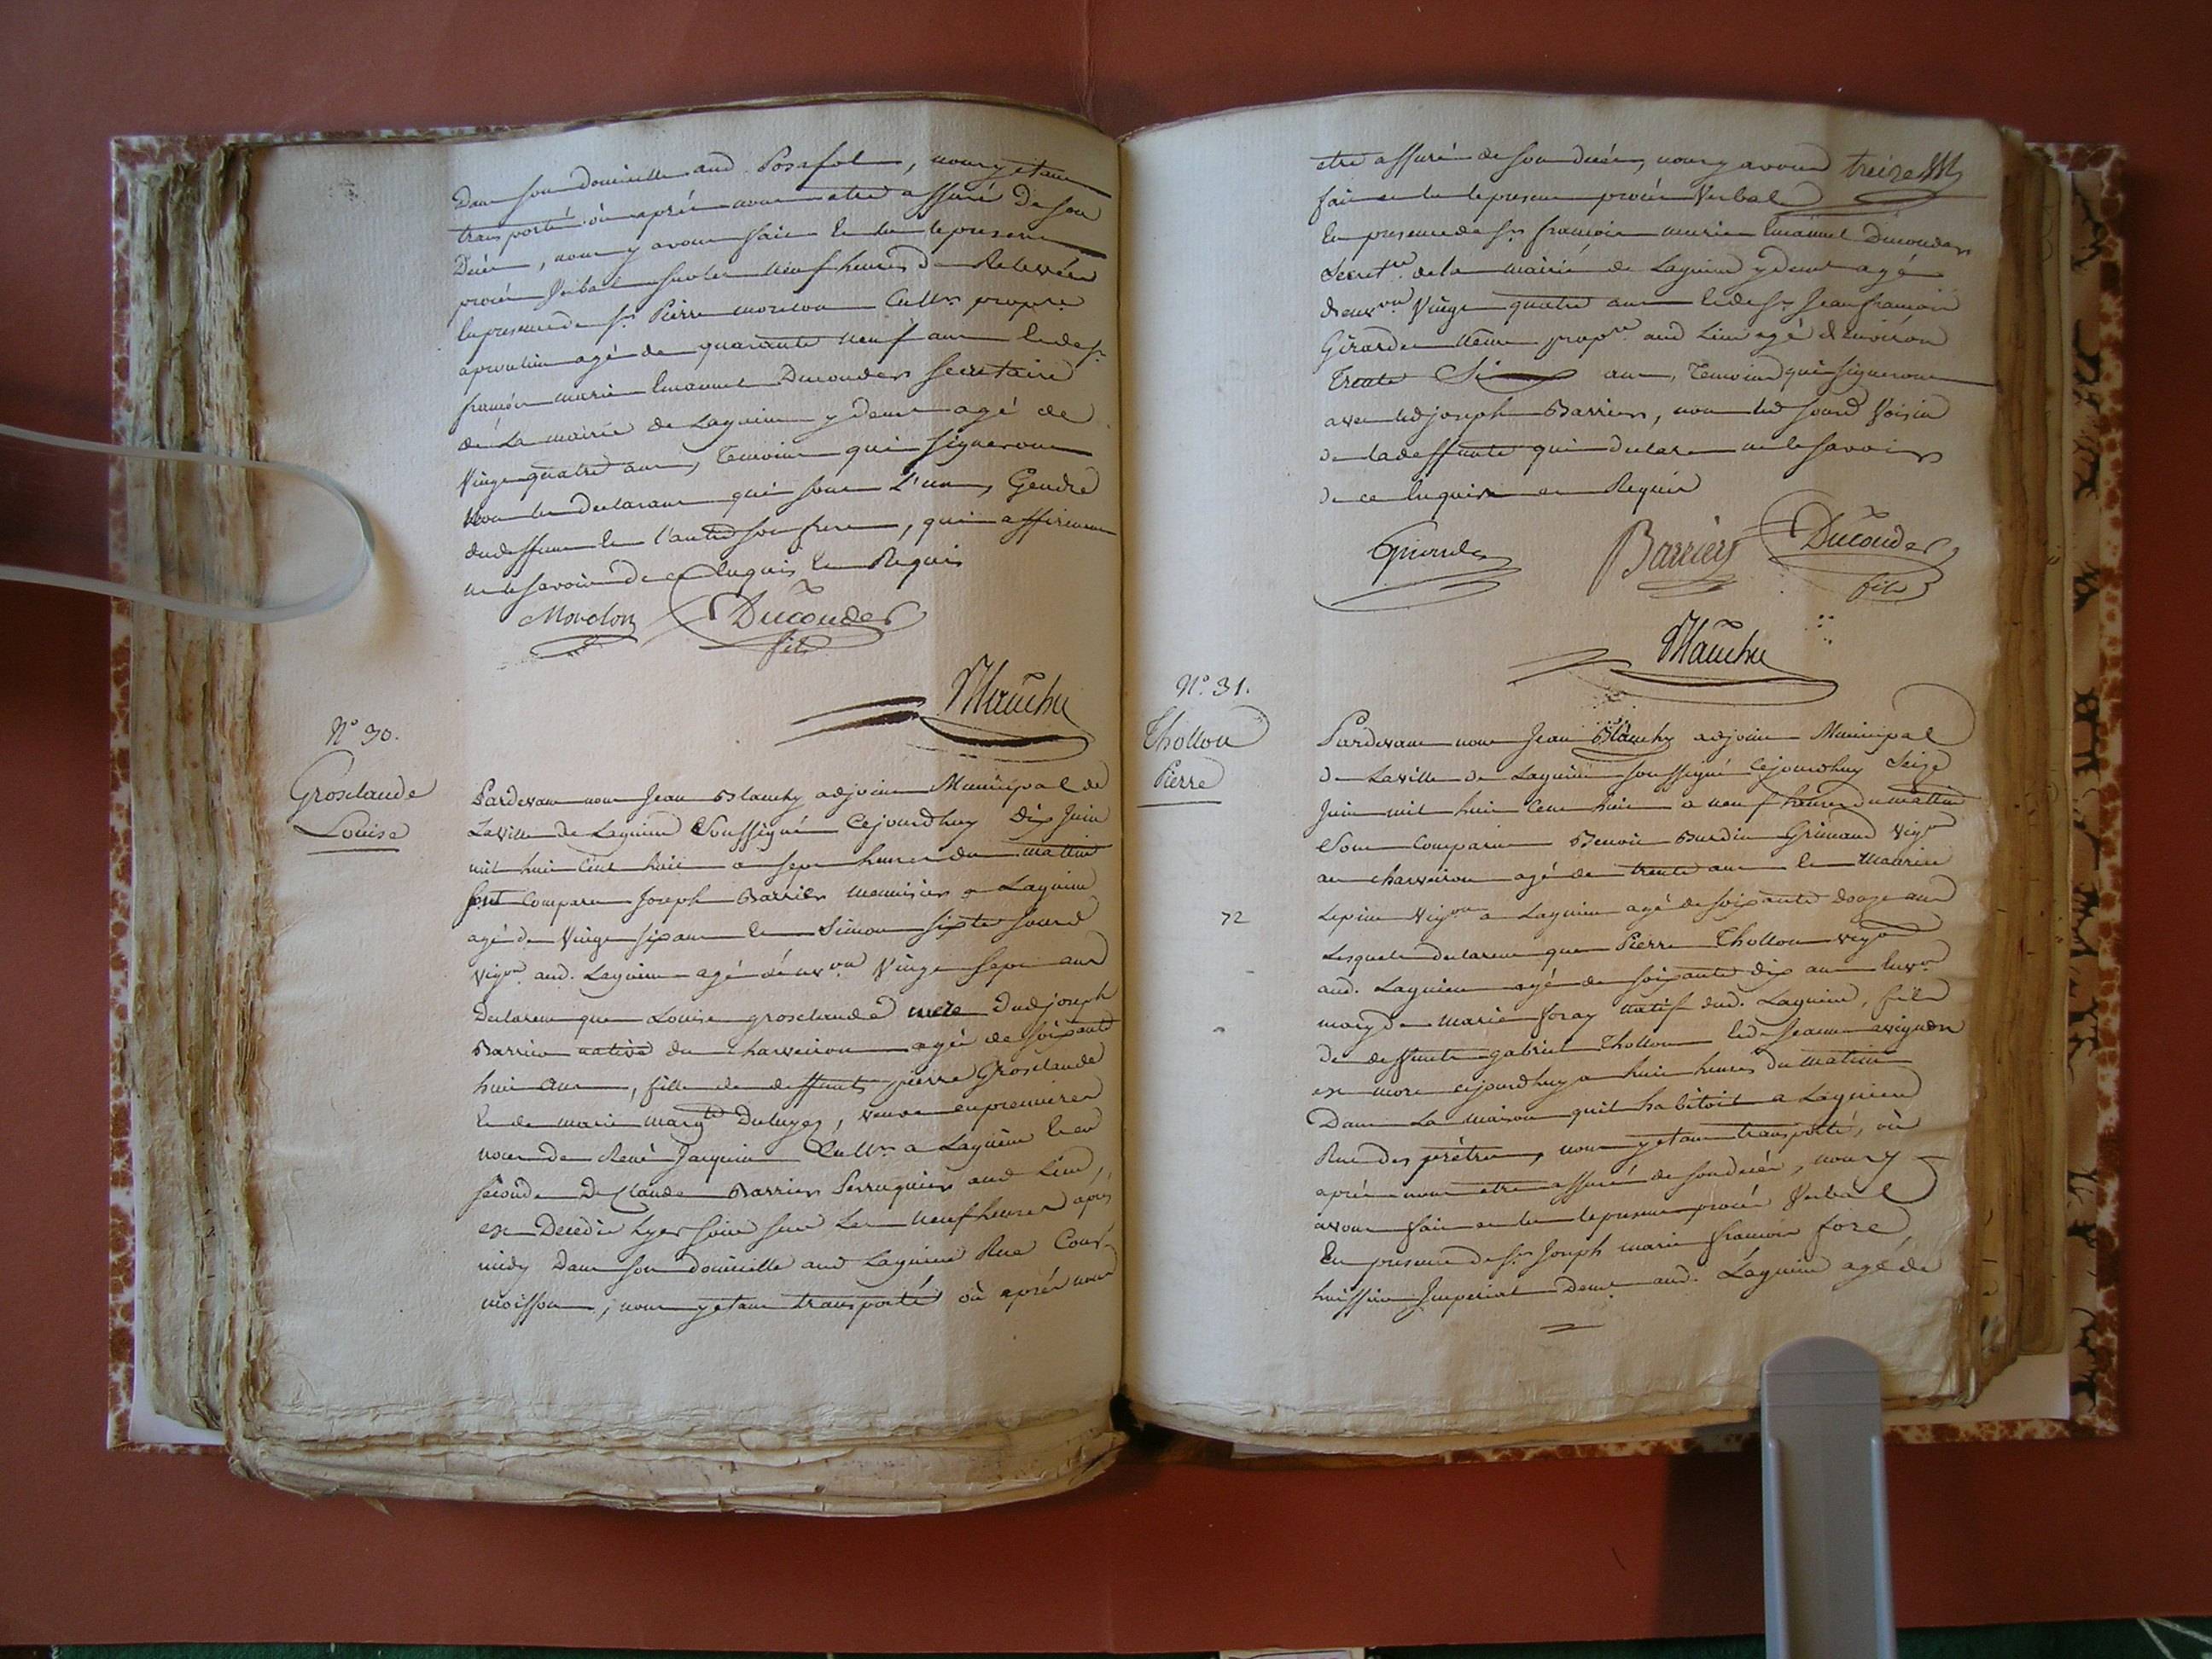 Dans son domicille aud Posafol, nous y etant
transporté où après nous etre assuré de son
Decés, nous y avons fait et lu le present
procés Verbal sur les neuf heures de Relevée
En presence de Sr. Pierre morelon Cultr. propre.
agé de quarante neuf ans et de Sr.
françois marie Emanuel Ducouder Secretaire
de La mairie de Lagnieu y demt agé de
Vingt quatre ans, Temoins qui signeront
Non les declarans qui sont L'un Gendre
du deffunt et l'autre son frere, qui affirment
ne le savoir de ce Enquis et Requis
Morelon Ducouder
fils
Blanchy
N° 30.
Grosclaude
Louise
Pardevant nous Jean Blanchy adjoint Municipal de
La Ville de Lagnieu Soussigné Cejourdhuy Dix Juin
mil huit Cent huit a sept heures du mattin
sont Comparu Joseph Barrier menuisier a Lagnieu
agé de Vingt six ans et Simon sixte sourd
vigon. aud. Lagnieu agé d'environ Vingt sept ans
Declarent que Louise grosclaude mere dud joseph
Barrier native de Charveiron agée de soixante
huit ans, fille de deffunts pierre Grosclaude
Et de marie margte Deluges, veuve en premieres
noces de René Jacquin Cultr. a Lagnieu et en
seconde De Claude Barrier Perruquier aud Lieu,
est Decedée hyer soir sur Les neuf heures après
midy Dans son domicille aud Lagnieu Rue Cour-
moisson, nous y etant transporté où après nous
etre assuré de son decés, nous y avons treize
fait et lu le present procés Verbal
En presence de Sr. françois marie Emanuel Ducouder
Secretre. de la mairie de Lagnieu y demt agé
d'environ Vingt quatre ans et de Sr. Jean françois
Girardet propre. aud Lieu agé d'environ
Trente Six ans, Temoins qui signeront
avec led joseph Barrier, non led sourd Voisin
de la deffunte qui declare ne le savoir
de ce Enquis et Requis
Girardet Barrier Ducouder
fils
Blanchy
N°. 31.
Thollon
Pierre
72
Pardevant nous Jean Blanchy adjoint Municipal
de La ville de Lagnieu soussigné Cejourdhuy Seize
Juin mil huit Cent huit a neuf heures du mattin
Sont Comparu Benoit Burdin Grimaud vigon
au charveiron agé de trente ans et Maurice
Lepine Vigon a Lagnieu agé de soixante douze ans
Lesquels declarent que Pierre Thollon vigon
aud. Lagnieu agé de soixante dix ans Envon
mary de marie foray natif dud. Lagnieu, fils
de deffunts gabriel Thollon et de Jeanne avignon
est mort cejourdhuy a huit heures du matin
Dans La maison quil habitoit a Lagnieu
Rue des prétres, nous y etant transporté, où
après nous etre assuré de son decés, nous y
avons fait et lu le present procés Verbal
En presence de Sr. Joseph marie françois foré
huissier Imperial Demt aud. Lagnieu agé de